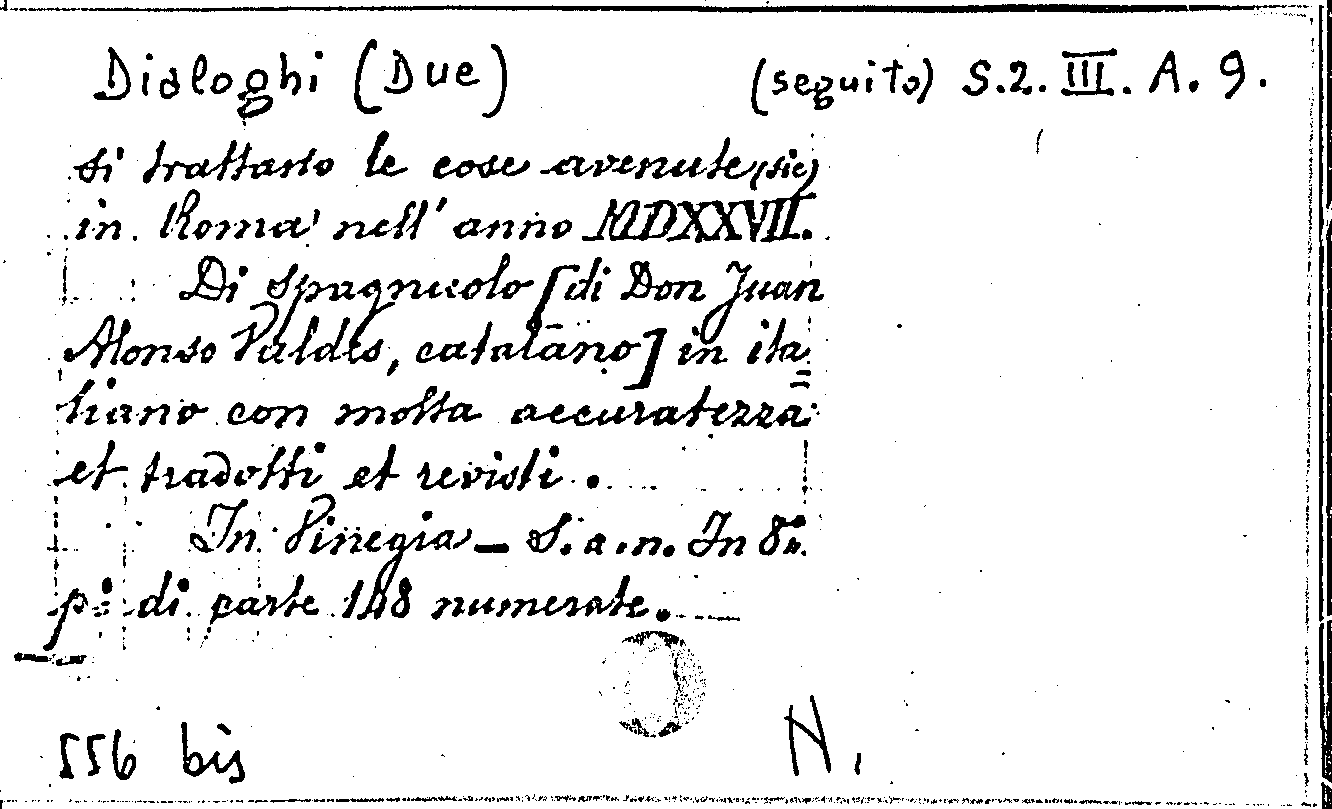 Dialoghi (Due) (seguito) S.2. III. A. 9.
si trattano le cose avenute (sic)
in Roma nell' anno MDXXVII.
Di Spagnuolo [di Don Juan
Alonso Valdes, catalano] in ita=
liano con molta accuratezza
et tradotti et revisti.
In Vinegia - S. a. n. In 8º.
pº di carte 148 numerate.
556 bis N.